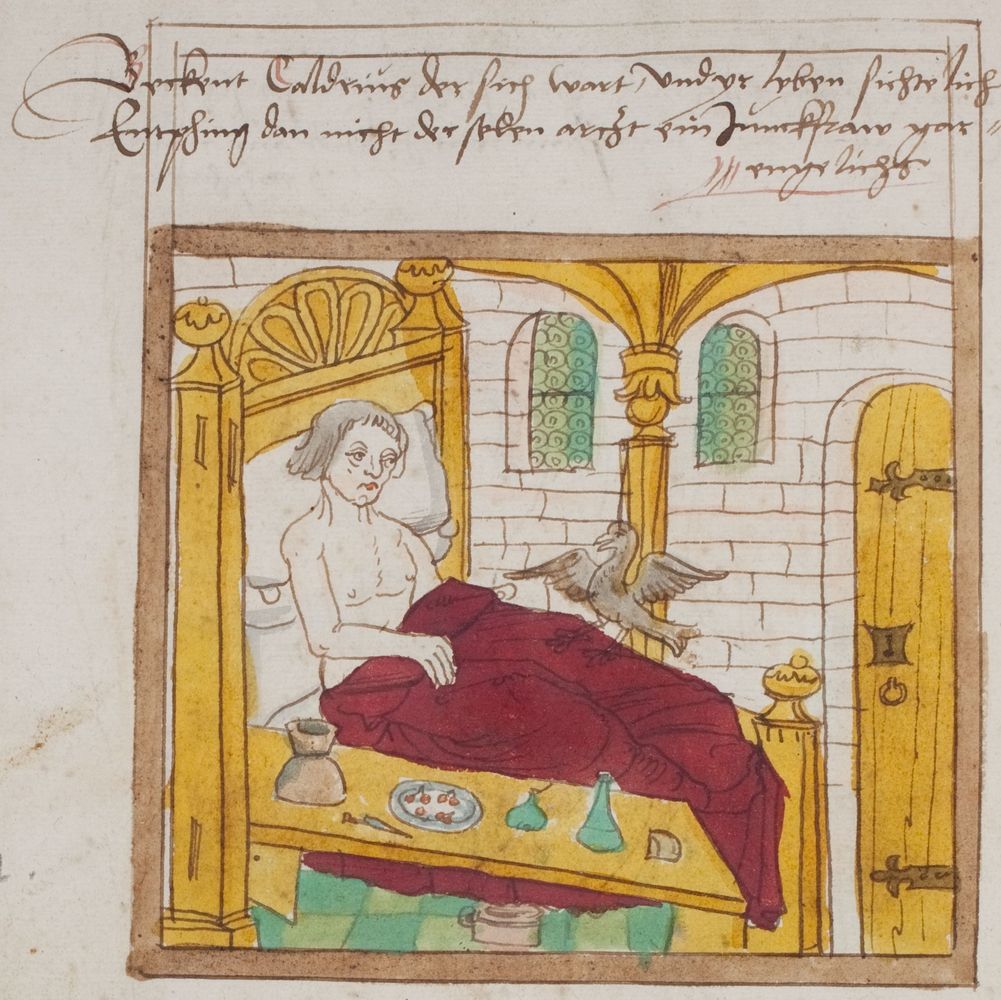 Beckent Caldrius der sich wart vnd yr leben sichtelich
Entphing dan nicht der selben arczt ein Junckfraw gar
engelichs